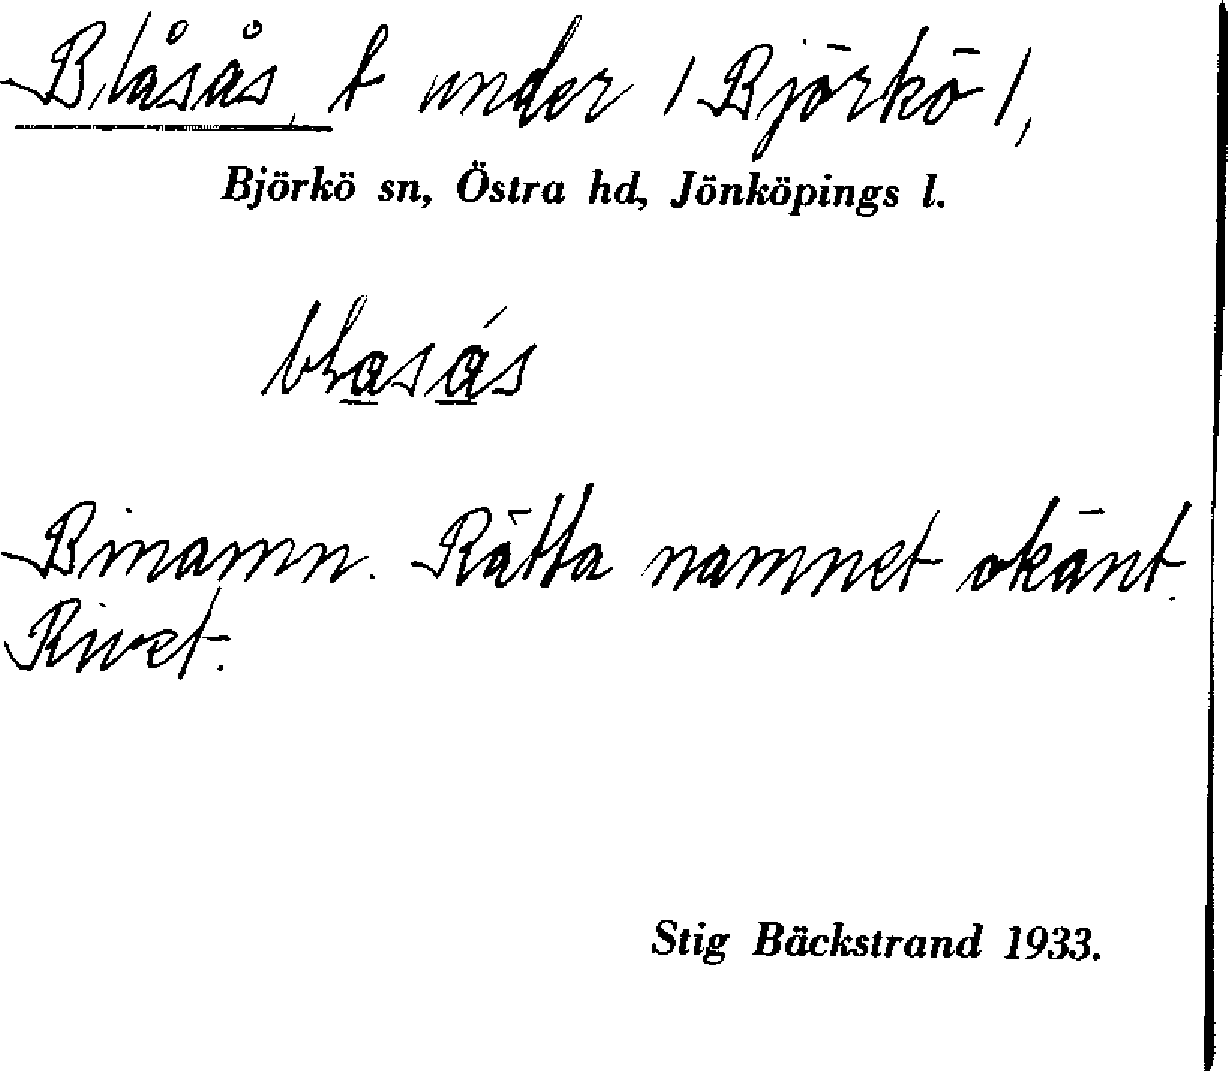 Blåsås, t under / Björkö /,
Björkö sn, Östra hd, Jönköpings l.
blasás
Binamn. Rätta namnet okänt.
Rivet.
Stig Bäckstrand 1933.